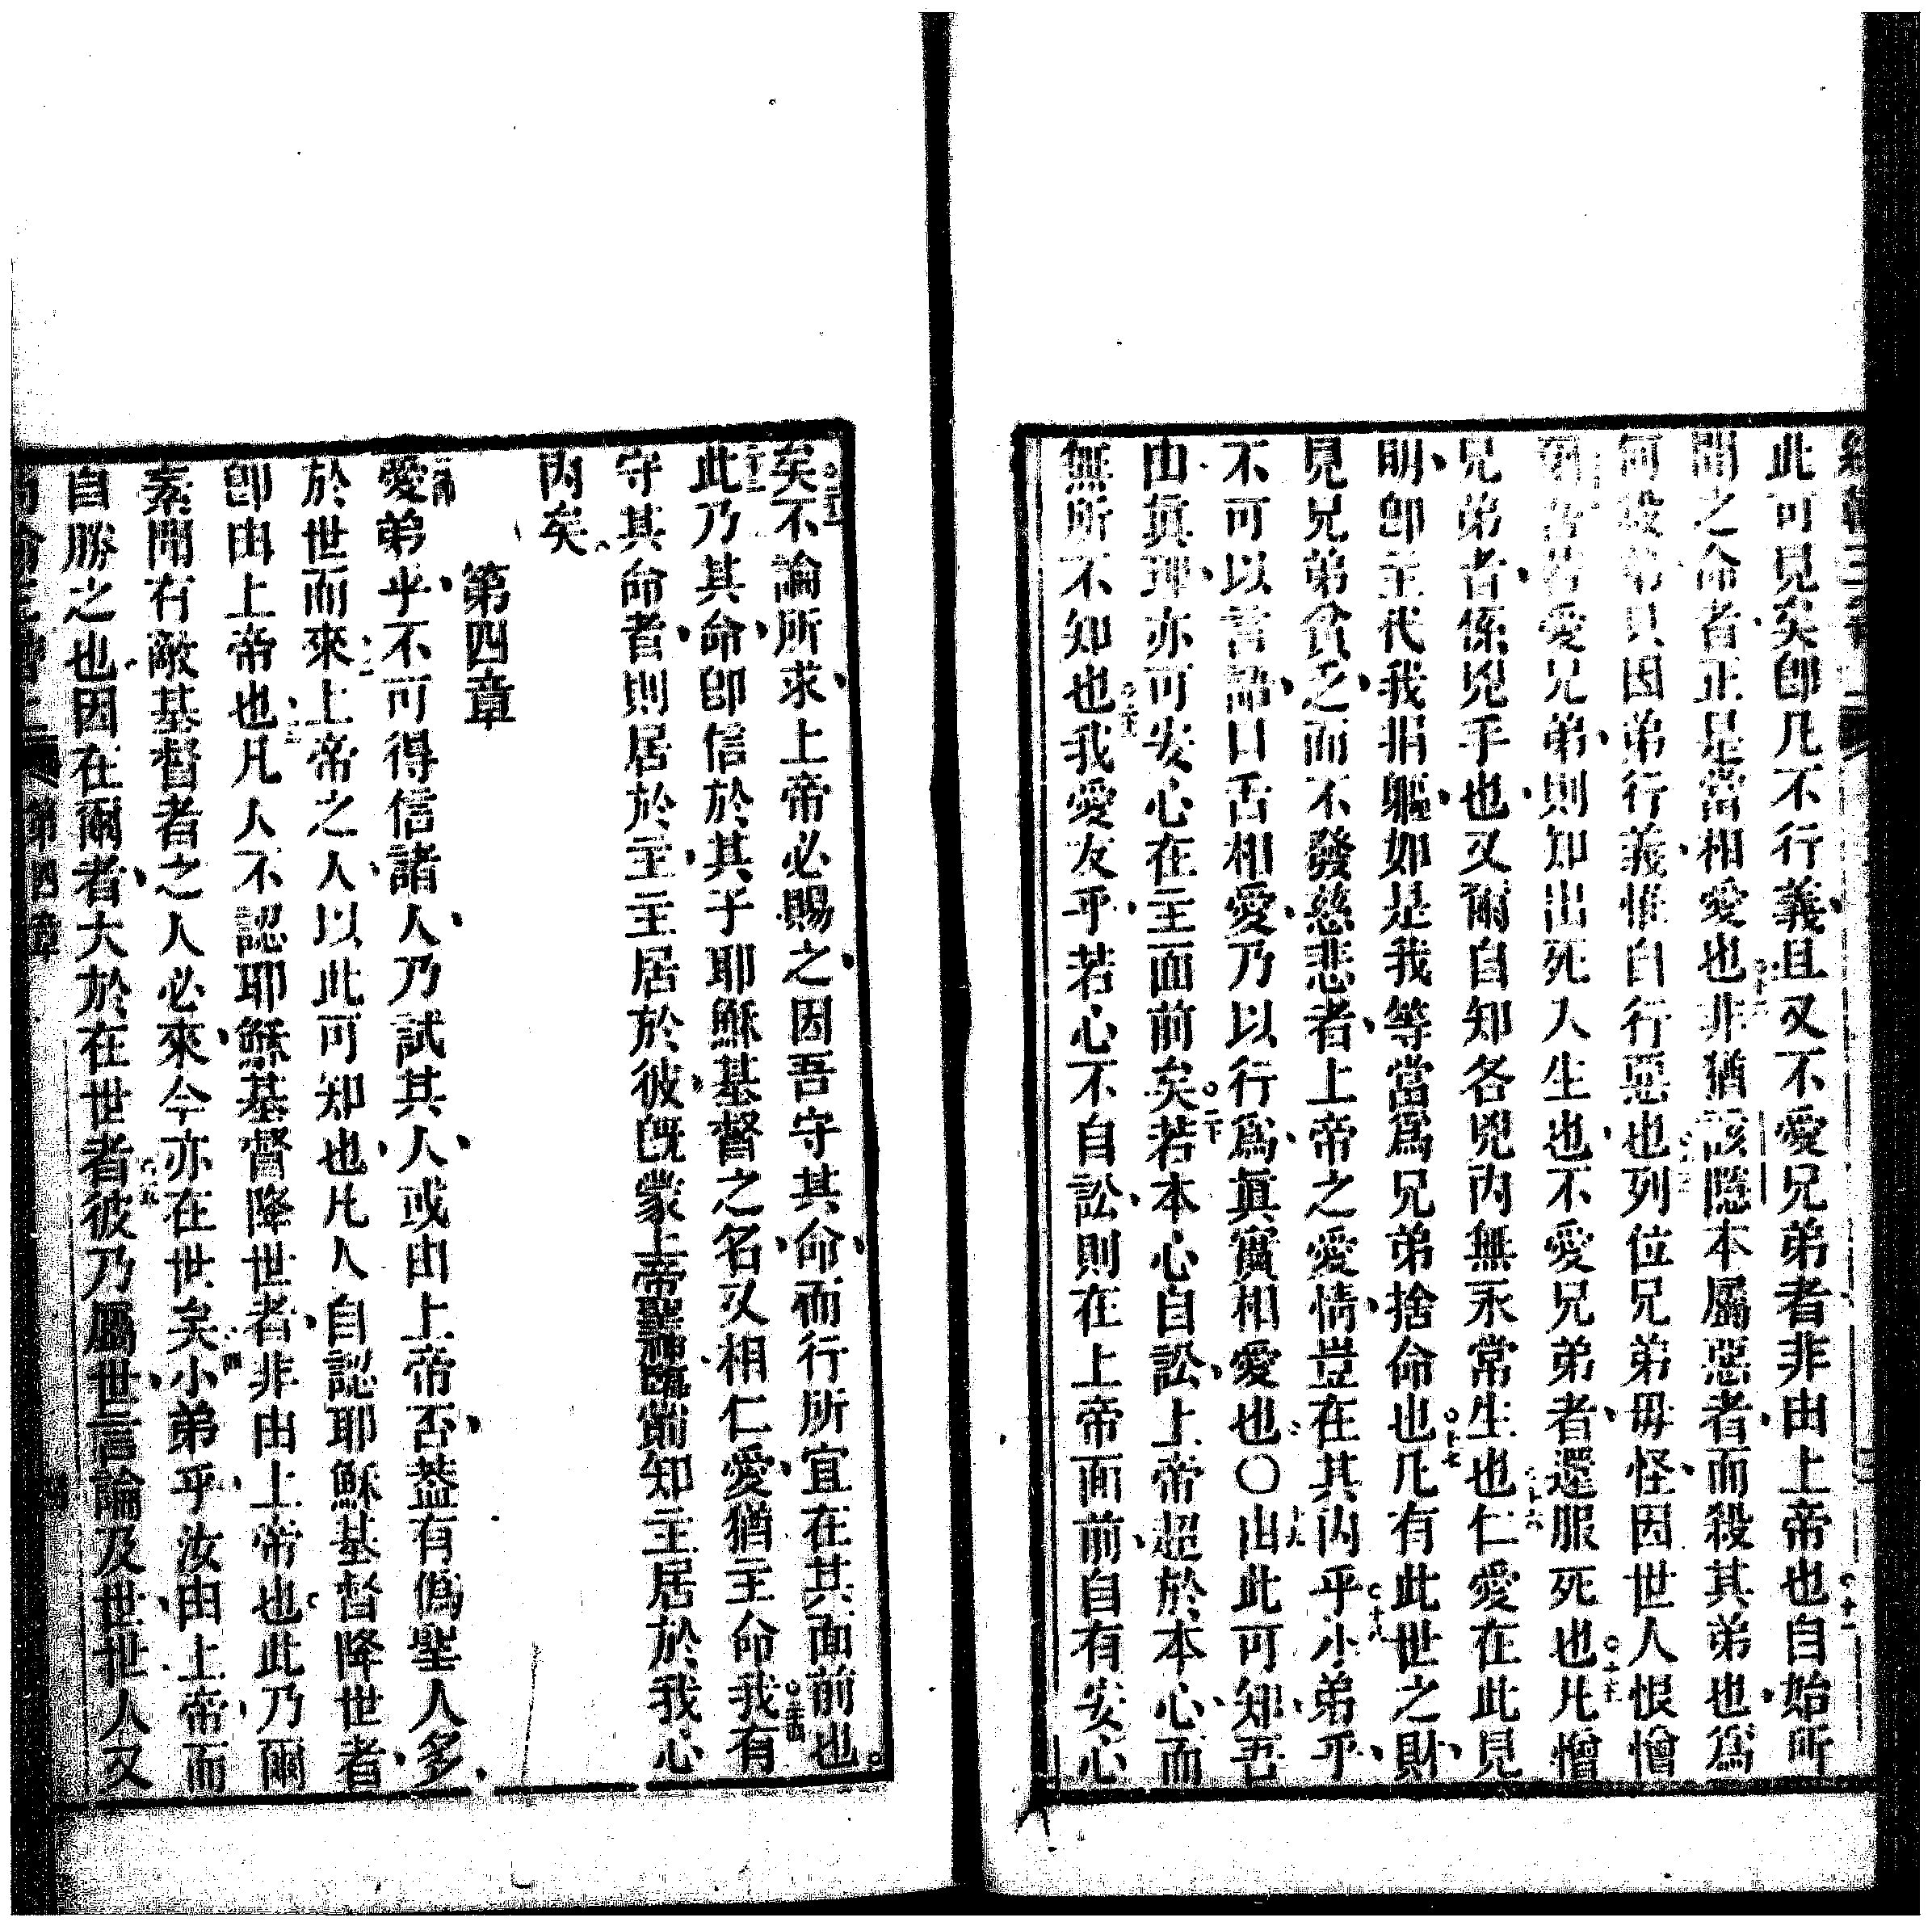 此可見矣卽凡不行義且又不愛兄弟者非由上帝也自始所
聞之命者正是當相愛也非猶該隱本屬惡者而殺其弟也爲
何殺弟只因弟行義惟自行惡也列位兄弟毋怪因世人恨憎
愛兄弟則知出死入生也不愛兄弟者還服死也凡憎
兄弟者係兇手也又爾自知各兇內無永常生也仁愛在此見
明卽主代我捐軀如是我等當爲兄弟捨命也凡有此世之財
見兄弟貧乏而不發慈悲者上帝之愛情豈在其內乎小弟乎
不可以言語口舌相愛乃以行爲眞實相愛也〇由此可知吾
由眞理亦可安心在主面前矣若本心自訟上帝超於本心而
無所不知也我愛友乎若心不自訟則在上帝面前自有安心
矣不論所求上帝必賜之因吾守其命而行所宜在其面前也
此乃其命卽信於其子耶穌基督之名又相仁愛猶主命我有
守其命者則居於主主居於彼旣蒙上帝聖神臨崇知主居於我心
內矣
第四章
愛弟乎不可得信諸人乃試其人或由上帝否葢有僞聖人多
於世而來上帝之人以此可知也凡人自認耶穌基督降世者
卽由上帝也凡人不認耶穌基督降世者非由上帝也此乃爾
素聞有敵基督者之人必來今亦在世矣小弟乎汝由上帝而
自勝之也因在爾者大於在世者彼乃屬世言論及世世人又
第四章